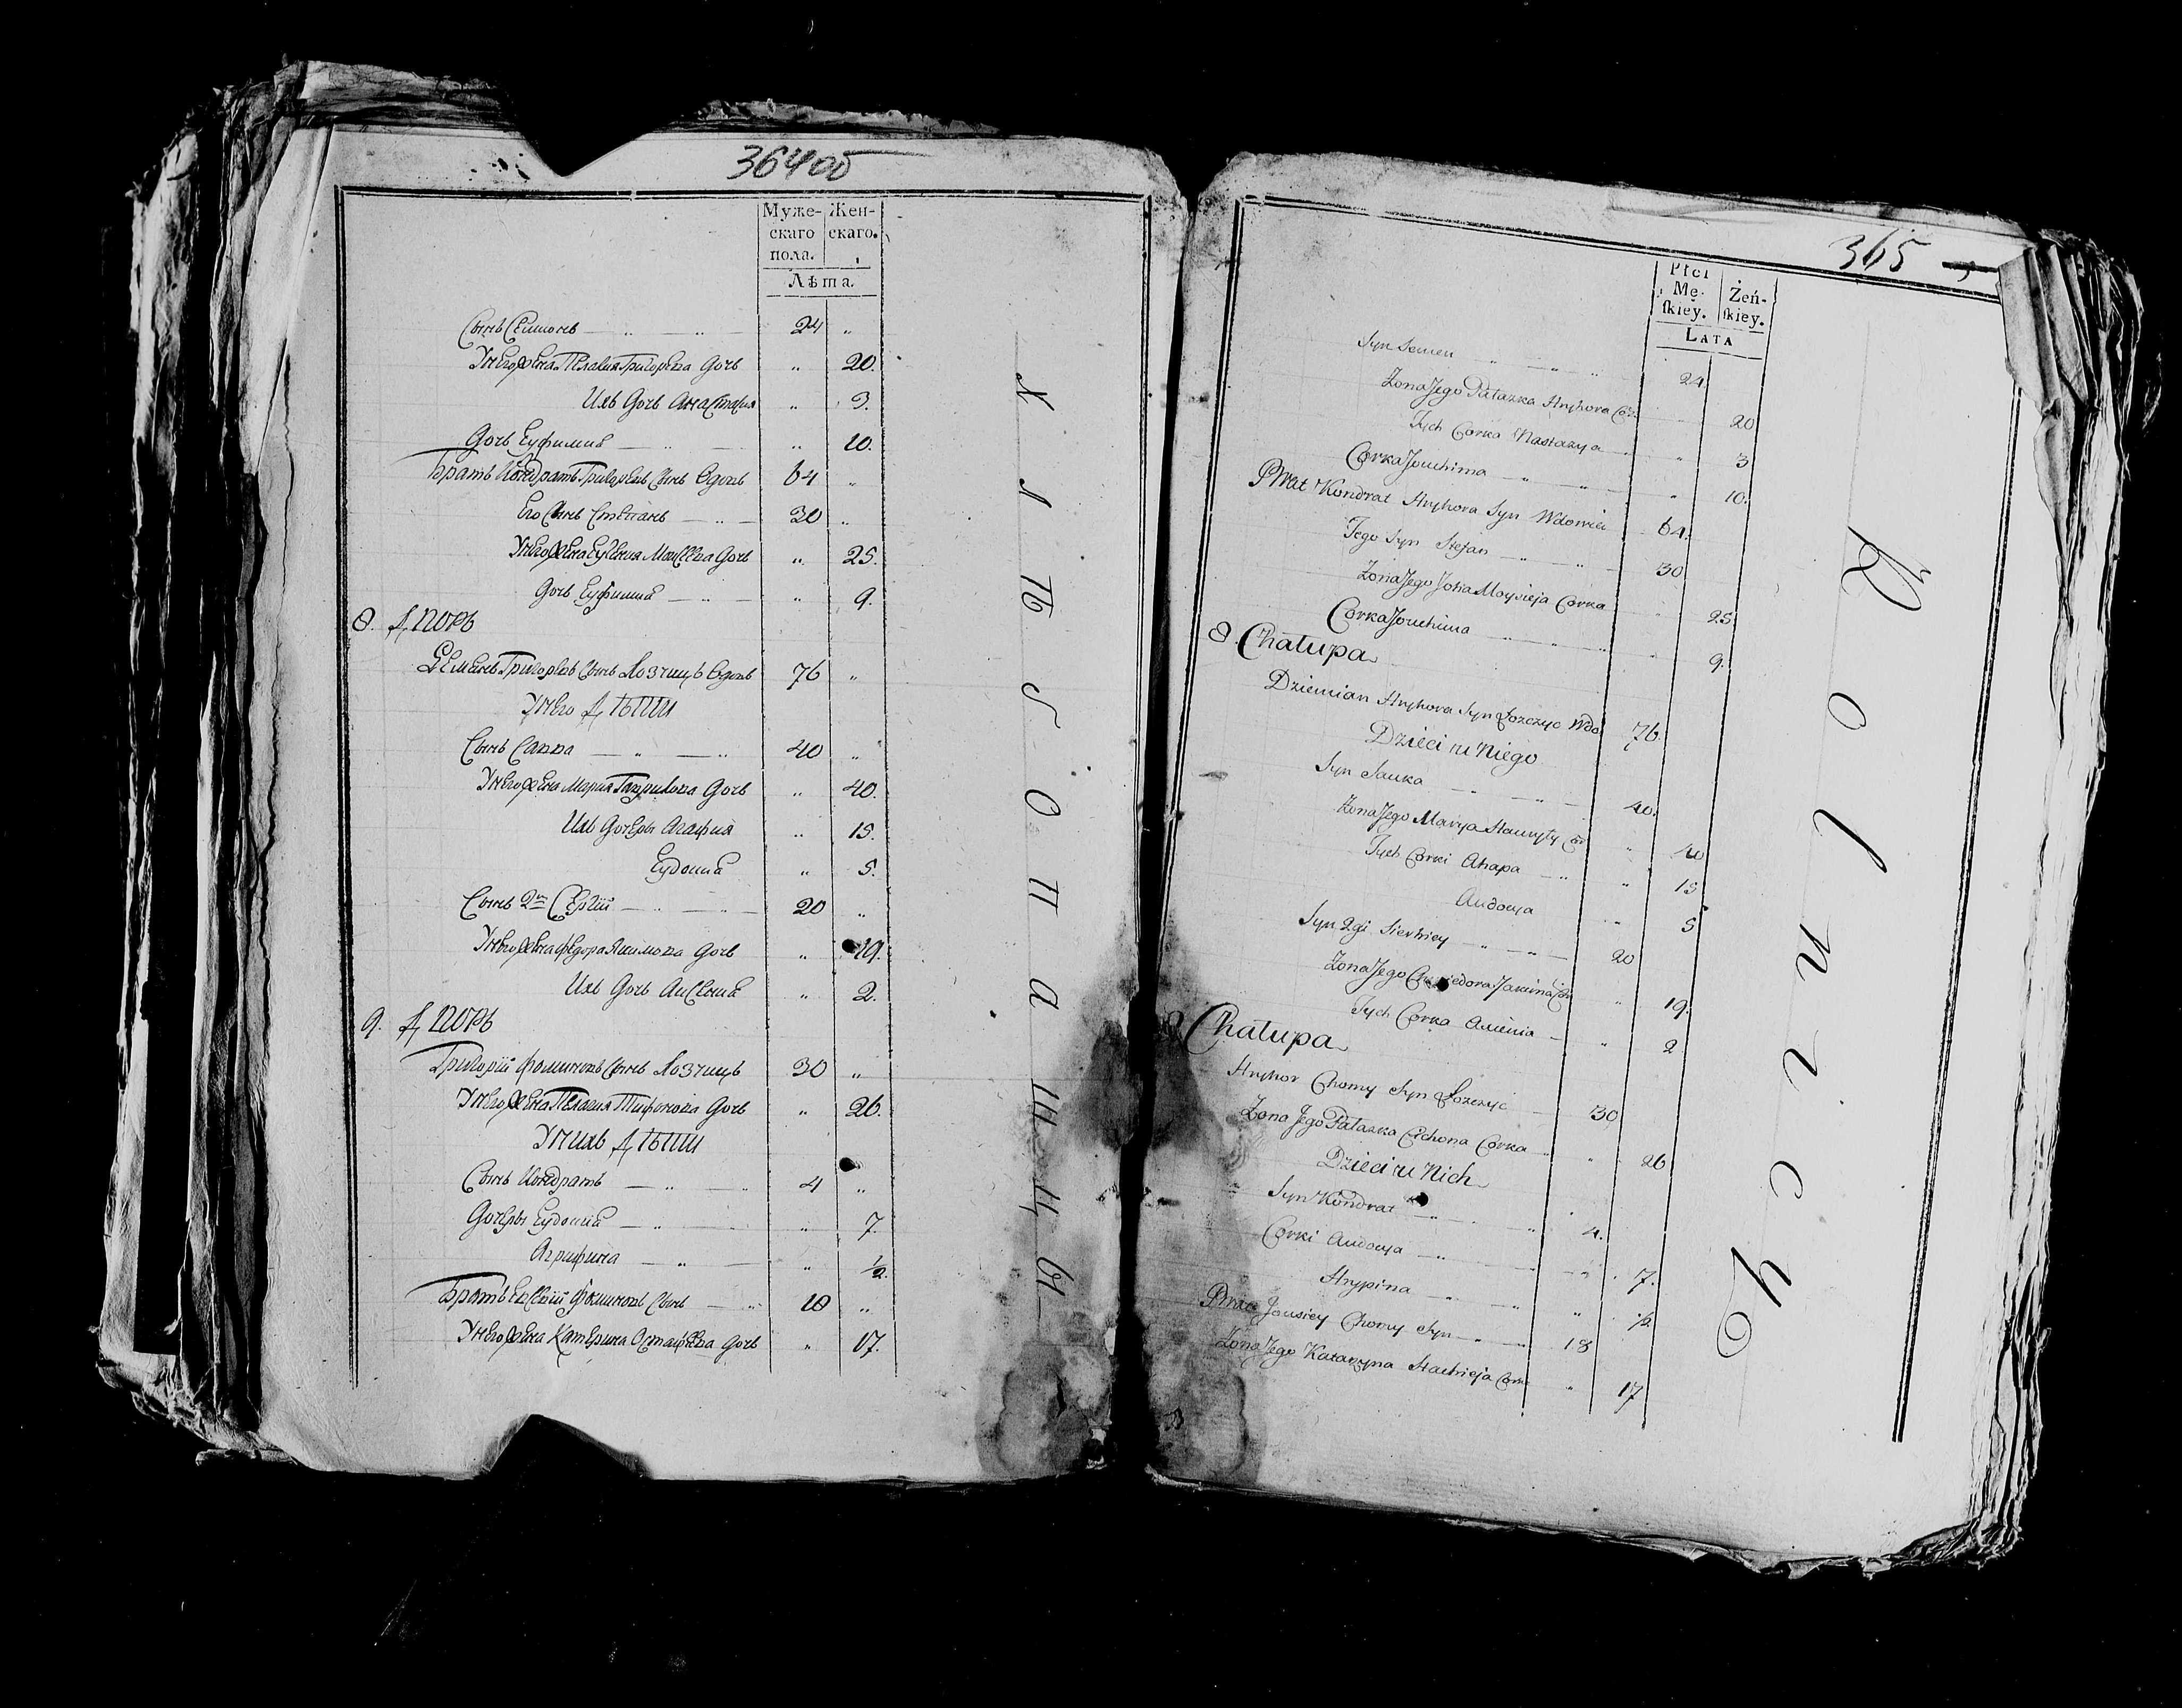 364 об
Муже- Жен-
скаго скаго.
пола.
Лѣта
Сынъ Симонъ — „ — „ — 24 „
У него жена Пелагия Григорьева дочь „ 20.
Ихъ дочь Анастасия „ 3.
Дочь Еуфимия — „ — „ 10.
Братъ Кондратъ Григорьевъ сынъ вдовъ 64 „
Его сынъ Степанъ — „ — 30 „
У него жена Еугения Моисеева дочь „ 25.
Дочь Еуфимия — „ — „ 9.
8. Дворъ
Демьянъ Григорьевъ сынъ Лозчицъ вдовъ 76 „
У него дѣти
Сынъ Савва — „ — „ 40 „
У него жена Мария Гаврилова дочь „ 40.
Ихъ дочери Агафия „ 15.
Еудокия „ 5.
Сынъ 2й Сергий — „ — „ 20 „
У него жена Федора Якимова дочь „ 19.
Ихъ дочь Аксения „ 2.
9. Дворъ
Григорий Фоминовъ сынъ Лозчицъ 30 „
У него жена Пелагия Тифонова дочь „ 26.
У нихъ дѣти
Сынъ Кондратъ — „ — 4 „
Дочери Еудокия — „ — „ 7.
Агрифина — „ — „ ½.
Братъ Евсевий Фоминовъ сынъ — „ 18 „
У него жена Катерина Остафиева дочь „ 17.
Хлѣбопашцы
365
Płci
Mę- Żeń-
skiey. skiey.
Lata
Syn Semen „ — „ „ 24
Zona Jego Pałazka Hryhora Cor. 20
Jych Corka Nastazya „ 3
Corka Jouchima „ „ — „ 10.
Brat Kondrat Hryhora Syn Wdowiec 64.
Jego Syn Stefan — „ — 30
Zona Jego Joha Moysieja Corka 25
Corka Jouchima „ 9.
8. Chałupa
Dziemian Hryhora Syn Łozczyc Wdo. 76.
Dzieci u Niego
Syn Sauka — „ — 40.
Zona Jego Marya Hauryły Cor „ 40
Jych Corki Ahapa — „ „ 15
Audocya „ 5
Syn 2gi Sierhiey — „ — „ 20
Zona Jego Chwiedora Jakima Cor „ 19.
Jych Corka Axienia — „ 2
Chałupa
Hryhor Chomy Syn Łozczyc 30
Zona Jego Pałazka Cichona Corka „ 26
Dzieci u Nich
Syn Kondrat — „ 4.
Corki Audocya — „ — „ 7.
Hrypina — „ „ ½
Brat Jousiey Chomy Syn — „ — 18
Zona Jego Katarzyna Stachieja Corka „ 17
Rolnicy